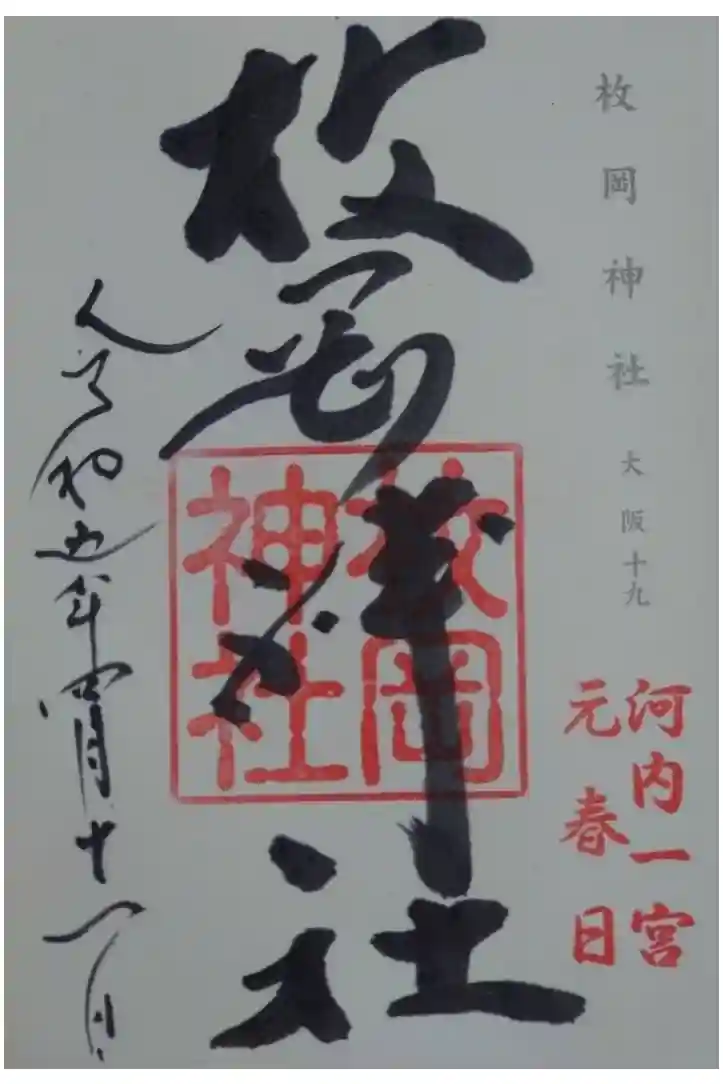 枚岡神社 大阪十九
河内一宮
元春日
枚岡神社
枚岡
神社
令和五年四月十一日